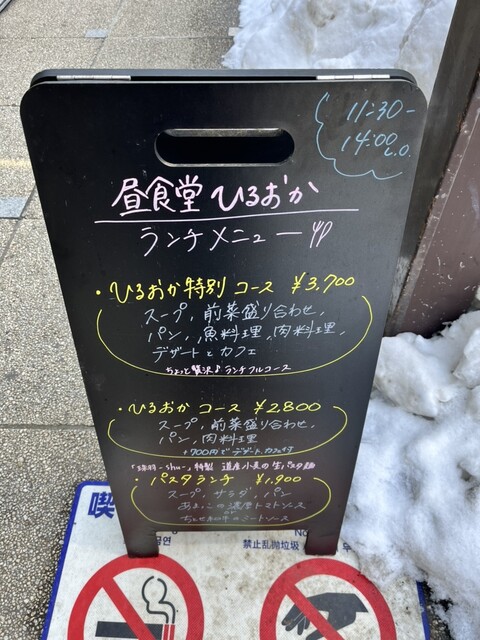 11:30-
14:00 L.O.
昼食堂 ひるおか
ランチメニュー
・ひるおか特別 コース ¥3,700
スープ, 前菜盛り合わせ,
パン, 魚料理, 肉料理,
デザートとカフェ
ちょっと贅沢♪ランチフルコース
・ひるおか コース ¥2800
スープ, 前菜盛り合わせ,
パン, 肉料理
+700円でデザート, カフェ付
-shu-」特製 道産小麦の生パスタ麺
・パスタランチ ¥1,900
スープ, サラダ, パン
濃厚トマトソース
or
ミートソース
喫
No
禁止乱抛垃圾